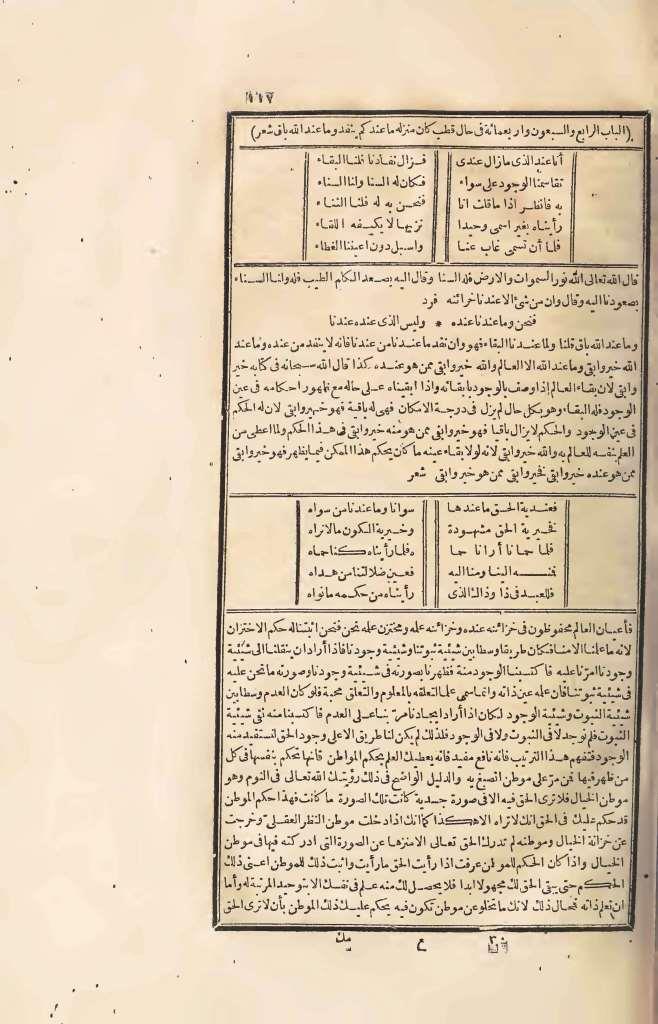 ١١٧
(الباب الرابع والسبعون واربعمائة فى حال قطب كان منزله ماعندكم ينفد وماعند الله باق شعر)
أناعند الذى مازال عندى فزال نفادنا فلنا البقاء
تقاسمنا الوجود على سواء فكان له السنا ولنا السناء
به فانظر اذا ماقلت انا فنحن به له فلنا الثناء
رأيناه بغير اسمى وحيدا نزيها لا يكيفه اللقاء
فلما أن تسمى غاب عنا واسبل دون اعيننا الغطاء
قال الله تعالى الله نور السموات والارض فله السنا وقال اليه يصعد الكلم الطيب فله ولنا السناء
بصعودنا اليه وقال وان من شئ الاعندنا خزائنه فرد
فنحن وماعندنا عنده * وليس الذى عنده عندنا
وماعند الله باق فلنا ولما عندنا البقاء فهو وان نفد ماعندنا من عندنا فانه لا ينفد من عنده وماعند
الله خير وابقى وماعند الله الا العالم والله خير وابقى ممن هو عنده كذا قال الله سبحانه فى كتابه خير
وابقى لان بقاء العالم إذا وصف بالوجود بابقائه واذا ابقيناه على حاله مع ظهور احكامه فى عين
الوجود فله البقاء وهو بكل حال لم يزل فى درجة الامكان فهى له باقية فهو خير وابقى لان له الحكم
فى عين الوجود والحكم لايزال باقيا فهو خير وابقى ممن هو منه خير وابقى فى هذا الحكم ولما اعطى من
العلم بنفسه للعالم به والله خير وابقى لانه لولا بقاء عينه ما كان يحكم هذا الممكن فيما يظهر فهو خير وابقى
ممن هو عنده خير وابقى فخير وابقى ممن هو خير وابقى شعر
فعندية الحق ماعندها سوانا وماعندنا من سواه
فخيرية الحق مشهودة وخيرية الكون مالا نراه
فلما حمانا أرانا حما ه فلما رأيناه كنا حماه
فنه الينا ومنا اليه فعين ضلالتنا من هداه
فللعبد فى ذا وذاك الذى رأيناه من حكمه مانواه
فأعيان العالم محفوظون فى خزائنه عنده وخزائنه علمه ومختزن علمه نحن فنحن اثبتنا له حكم الاختزان
لانه ماعلمنا الامنا فكان طريقا وسطا بين شيئية ثبوتنا وشيئية وجودنا فاذا أراد ان ينقلنا الى شيئية
وجودنا امرّنا عليه فاكتسبنا الوجود منه فظهرنا بصورته فى شيئية وجودنا وصورته مانحن عليه
فى شيئية ثبوتنا فان علمه عين ذاته وانما سمى علما لتعلقه بالمعلوم والتعلق محبة فلو كان العدم وسطا بين
شيئية الثبوت وشيئية الوجود لكان اذا أراد ايجادنا مرّ بنا على العدم فاكتسبنا منه نفى شيئية
الثبوت فلم نوجد لا فى الثبوت ولا فى الوجود فلذلك لم يكن لنا طريق الاعلى وجود الحق لنستفيد منه
الوجود فتفهم هذا الترتيب فانه نافع مفيد فانه يعطيك العلم بحكم المواطن فانها تحكم بنفسها فى كل
من ظهر فيها فمن مرّ على موطن انصبغ به والدليل الواضح فى ذلك رؤيتك الله تعالى فى النوم وهو
موطن الخيال فلا ترى الحق فيه الا فى صورة جسدية كانت تلك الصورة ما كانت فهذا حكم الموطن
قد حكم عليك فى الحق انك لا تراه الا هكذا كما انك اذا دخلت موطن النظر العقلى وخرجت
عن خزانة الخيال وموطنه لم تدرك الحق تعالى الا منزها عن الصورة التى ادركته فيها فى موطن
الخيال واذا كان الحكم للموطن عرفت اذا رأيت الحق مارأيت واثبت ذلك للموطن اعنى ذلك
الحكم حتى يبقى الحق لك مجهولا ابدا فلا يحصل لك منه علم فى نفسك الا بتوحيد المرتبة له وأما
ان تعلم ذاته فمحال ذلك لانك ماتخلو عن موطن تكون فيه يحكم عليك ذلك الموطن بأن لا ترى الحق
٣٠ ع مك